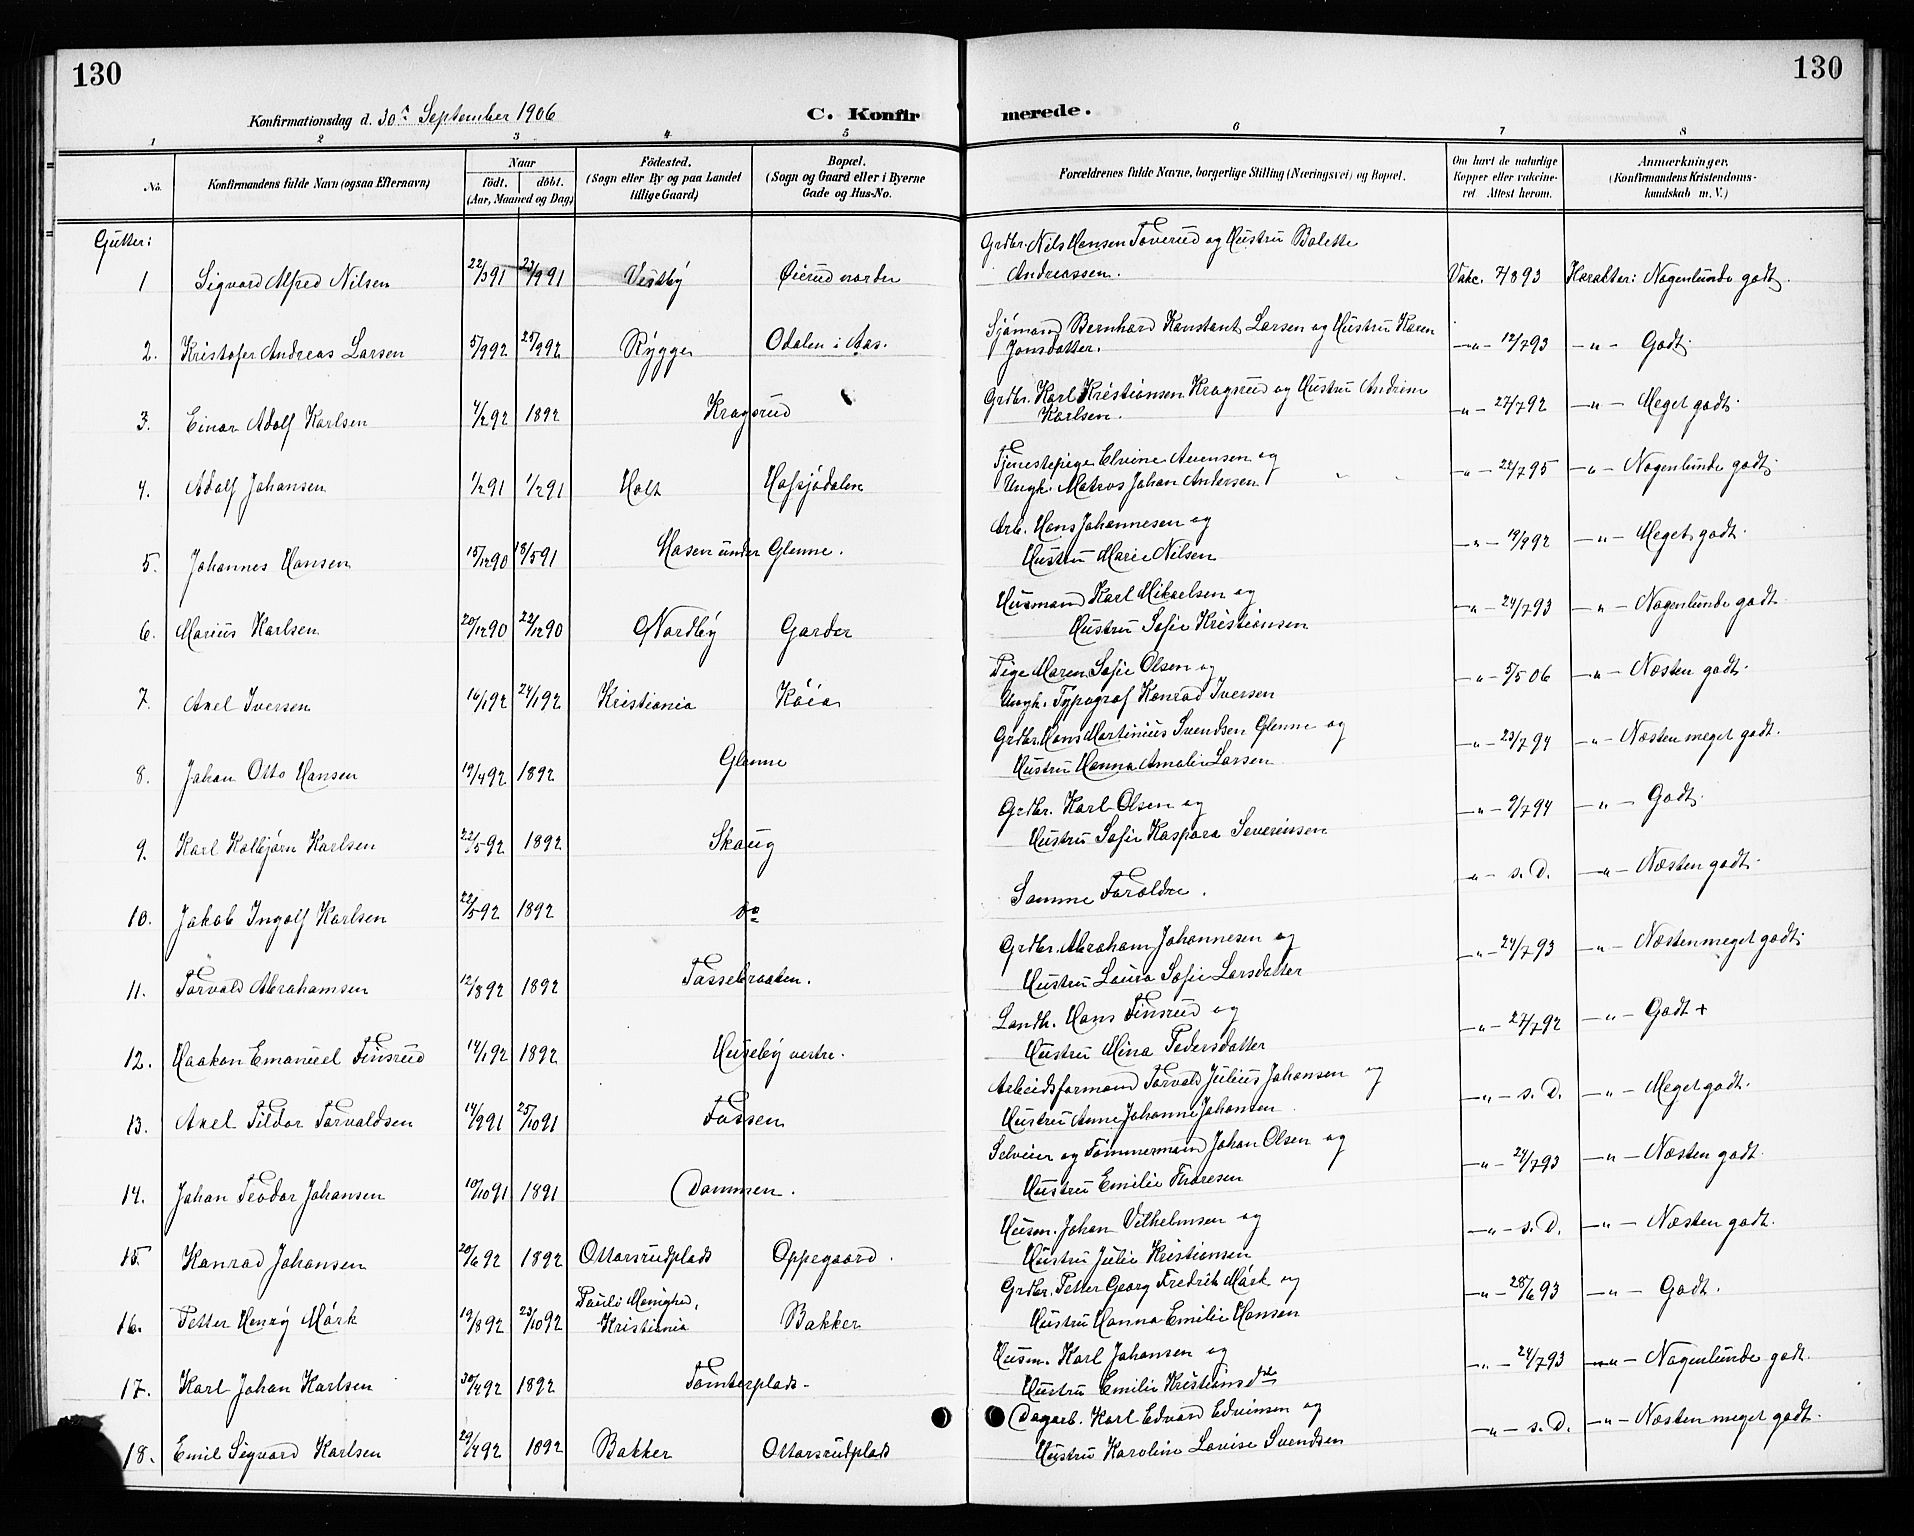 130
130
Konfirmationsdag d. 30te September 1906
C. Konfirmerede.
1 2 3 4 5 6 7 8
No.
Konfirmandens fulde Navn (ogsaa Efternavn)
Naar
födt. döbt.
(Aar, Maaned og Dag)
Födested.
(Sogn eller By og paa Landet
tillige Gaard)
Bopæl.
(Sogn og Gaard eller i Byerne
Gade og Hus-No.
Forældrenes fulde Navne, borgerlige Stilling (Næringsvei) og Bopæl.
Om havt de naturlige
Kopper eller vakcine-
ret. Attest herom.
Anmærkninger.
(Konfirmandens Kristendoms-
kundskab m. V.)
Gutter:
Grdbr. Nils Hansen Toverud og Hustru Bolette
1 Sigvard Alfred Nilsen 22/3 91 23/9 91 Vestby Øierud nordre Andreassen. Vakc. 7/8 93 Karakter: Nogenlunde godt.
Sjömand Bernhard Konstant Larsen og Hustru Karen
2. Kristofer Andreas Larsen 5/9 92 25/9 92 Rygge Odalen i Aas. Jonsdatter. —"— 12/7 93 —"— Godt.
Grdbr. Karl Kristiansen Kragsrud og Hustru Andrine
3. Einar Adolf Karlsen 4/2 92 1892 Kragsrud Karlsen. —"— 27/7 92 —"— Meget godt.
Tjenestepige Elvine Evensen og
4. Adolf Johansen 1/2 91 1/2 91 Holt Hofsjödalen Ungk. Matros Johan Andersen —"— 22/7 95 —"— Nogenlunde godt.
Arb. Hans Johannesen og
5. Johannes Hansen 15/12 90 18/5 91 Mosen under Glenne. Hustru Marie Nilsen —"— 19/9 92 —"— Meget godt.
Husmand Karl Mikaelsen og
6. Marius Karlsen 20/12 90 22/12 90 Nordby Garder Hustru Sofie Kristiansen —"— 24/7 93 —"— Nogenlunde godt.
Pige Maren Sofie Olsen og
7. Axel Iversen 16/1 92 24/1 92 Kristiania Köia Ungk. Typograf Konrad Iversen —"— 5/5 06 —"— Næsten godt.
Grdbr. Hans Martinius Svendsen Glenne og
8. Johan Otto Hansen 19/4 92 1892 Glenne Hustru Hanna Amalie Larsen —"— 23/7 94 —"— Næsten meget godt.
Grdbr. Karl Olsen og
9. Karl Kolbjörn Karlsen 22/5 92 1892 Skaug Hustru Sofie Kaspara Severinsen —"— 9/7 94 —"— Godt.
10. Jakob Ingolf Karlsen 22/5 92 1892 do Samme Forældre. —"— s. D. —"— Næsten godt.
Grdbr. Abraham Johannesen og
11. Torvald Abrahamsen 12/8 92 1892 Fossebraaten. Hustru Laura Sofie Larsdatter —"— 24/7 93 —"— Næsten meget godt.
Landh. Hans Finsrud og
12. Haakon Emanuel Finsrud 14/1 92 1892 Huseby vestre. Hustru Mina Pedersdatter —"— 27/7 92 —"— Godt +
Arbeidsformand Torvald Julius Johansen og
13. Axel Fildor Torvaldsen 14/9 91 25/10 91 Fossen Hustru Anne Johanne Johansen —"— s. D. —"— Meget godt.
Selveier og Tömmermand Johan Olsen og
14. Johan Teodor Johansen 10/10 91 1891 Dammen. Hustru Emilie Thoresen —"— 24/7 93 —"— Næsten godt.
Husm. Johan Vilhelmsen og
15. Konrad Johansen 20/6 92 1892 Ottarsrudplads Oppegaard. Hustru Julie Kristiansen —"— s. D. —"— Næsten godt.
Grdbr. Petter Georg Fredrik Mörk og
16. Petter Henry Mörk 19/8 92 23/10 92 Pauli Menighed, Kristiania Bakker Hustru Hanna Emilie Hansen —"— 28/6 93 —"— Godt.
Husm. Karl Johansen og
17. Karl Johan Karlsen 30/4 92 1892 Tomterplads. Hustru Emilie Kristiansdtr —"— 24/7 93 —"— Nogenlunde godt.
Dagarb. Karl Edvard Edvinsen og
18. Emil Sigvard Karlsen 29/4 92 1892 Bakker Ottarsrudplads Hustru Karoline Lovise Svendsen —"— s. D. —"— Næsten meget godt.